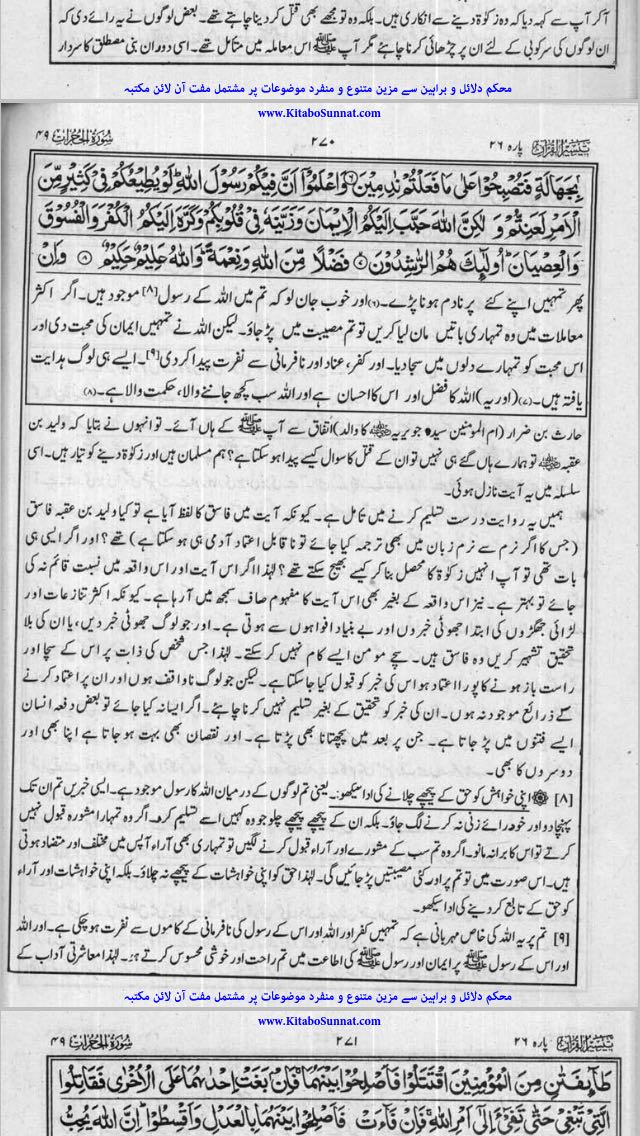 آکر آپ سے کہہ دیا کہ وہ زکوٰۃ دینے سے انکاری ہیں۔ بلکہ وہ تو مجھے بھی قتل کر دینا چاہتے تھے۔ بعض لوگوں نے یہ رائے دی کہ
ان لوگوں کی سرکوبی کے لئے ان پر چڑھائی کرنا چاہئے مگر آپ ﷺ اس معاملہ میں متامل تھے۔ اسی دوران بنی مصطلق کا سردار
محکم دلائل و براہین سے مزین متنوع و منفرد موضوعات پر مشتمل مفت آن لائن مکتبہ
www.KitaboSunnat.com
تیسیر القرآن پارہ ۲۶ ۲۷۰ سُوْرَةُ الحُجُرَات ۴۹
بِجَهَالَةٍ فَتُصْبِحُوْا عَلٰى مَا فَعَلْتُمْ نٰدِمِيْنَ ۶ وَاعْلَمُوْٓا اَنَّ فِيْكُمْ رَسُوْلَ اللّٰهِ لَوْ يُطِيْعُكُمْ فِيْ كَثِيْرٍ مِّنَ
الْاَمْرِ لَعَنِتُّمْ وَلٰكِنَّ اللّٰهَ حَبَّبَ اِلَيْكُمُ الْاِيْمَانَ وَزَيَّنَهٗ فِيْ قُلُوْبِكُمْ وَكَرَّهَ اِلَيْكُمُ الْكُفْرَ وَالْفُسُوْقَ
وَالْعِصْيَانَ اُولٰٓئِكَ هُمُ الرّٰشِدُوْنَ ۷ فَضْلًا مِّنَ اللّٰهِ وَنِعْمَةً وَاللّٰهُ عَلِيْمٌ حَكِيْمٌ ۸ وَاِنْ
پھر تمہیں اپنے کئے پر نادم ہونا پڑے۔(۶) اور خوب جان لو کہ تم میں اللہ کے رسول [۸] موجود ہیں۔ اگر اکثر
معاملات میں وہ تمہاری باتیں مان لیا کریں تو تم مصیبت میں پڑ جاؤ۔ لیکن اللہ نے تمہیں ایمان کی محبت دی اور
اس محبت کو تمہارے دلوں میں سجا دیا۔ اور کفر، عناد اور نافرمانی سے نفرت پیدا کر دی [۹]۔ ایسے ہی لوگ ہدایت
یافتہ ہیں۔(۷) (اور یہ) اللہ کا فضل اور اس کا احسان ہے اور اللہ سب کچھ جاننے والا، حکمت والا ہے۔(۸)
حارث بن ضرار (ام المومنین سیدہ جویریہ کا والد) اتفاق سے آپ ﷺ کے ہاں آئے۔ تو انہوں نے بتایا کہ ولید بن
عقبہ تو ہمارے ہاں گئے ہی نہیں تو ان کے قتل کا سوال کیسے پیدا ہو سکتا ہے؟ ہم مسلمان ہیں اور زکوٰۃ دینے کو تیار ہیں۔ اسی
سلسلہ میں یہ آیت نازل ہوئی۔
ہمیں یہ روایت درست تسلیم کرنے میں تامل ہے۔ کیونکہ آیت میں فاسق کا لفظ آیا ہے تو کیا ولید بن عقبہ فاسق
(جس کا اگر نرم سے نرم زبان میں بھی ترجمہ کیا جائے تو ناقابل اعتماد آدمی ہی ہو سکتا ہے) تھے؟ اور اگر ایسی ہی
بات تھی تو آپ انہیں زکوٰۃ کا محصل بنا کر کیسے بھیج سکتے تھے؟ لہٰذا اگر اس آیت اور اس واقعہ میں نسبت قائم نہ کی
جائے تو بہتر ہے۔ نیز اس واقعہ کے بغیر بھی اس آیت کا مفہوم صاف سمجھ میں آ رہا ہے۔ کیونکہ اکثر تنازعات اور
لڑائی جھگڑوں کی ابتدا جھوٹی خبروں اور بے بنیاد افواہوں سے ہوتی ہے۔ اور جو لوگ جھوٹی خبر دیں، یا ان کی بلا
تحقیق تشہیر کریں وہ فاسق ہیں۔ سچے مومن ایسے کام نہیں کر سکتے۔ لہٰذا جس شخص کی ذات پر اس کے سچا اور
راست باز ہونے کا پورا اعتماد ہو اس کی خبر کو قبول کیا جا سکتا ہے۔ لیکن جو لوگ ناواقف ہوں اور ان پر اعتماد کرنے
کے ذرائع موجود نہ ہوں۔ ان کی خبر کو تحقیق کے بغیر تسلیم نہیں کرنا چاہئے۔ اگر ایسا نہ کیا جائے تو بعض دفعہ انسان
ایسے فتنوں میں پڑ جاتا ہے۔ جن پر بعد میں پچھتانا بھی پڑتا ہے۔ اور نقصان بھی بہت ہو جاتا ہے اپنا بھی اور
دوسروں کا بھی۔
[۸] اپنی خواہش کو حق کے پیچھے چلانے کی ادا سیکھو:۔ یعنی تم لوگوں کے درمیان اللہ کا رسول موجود ہے۔ ایسی خبریں تم ان تک
پہنچا دو اور خود رائے زنی نہ کرنے لگ جاؤ۔ بلکہ ان کے پیچھے پیچھے چلو جو وہ کہیں اسے تسلیم کرو۔ اگر وہ تمہارا مشورہ قبول نہیں
کرتے تو اس کا برا نہ مانو۔ اگر وہ تم سب کے مشورے اور آراء قبول کرنے لگیں تو تمہاری بھی آراء آپس میں مختلف اور متضاد ہوتی
ہیں۔ اس صورت میں تو تم پر اور کئی مصیبتیں پڑ جائیں گی۔ لہٰذا حق کو اپنی خواہشات کے پیچھے نہ چلاؤ۔ بلکہ اپنی خواہشات اور آراء
کو حق کے تابع کر دینے کی ادا سیکھو۔
[۹] تم پر یہ اللہ کی خاص مہربانی ہے کہ تمہیں کفر اور اللہ اور اس کے رسول کی نافرمانی کے کاموں سے نفرت ہو چکی ہے۔ اور اللہ
اور اس کے رسول ﷺ پر ایمان اور رسول ﷺ کی اطاعت میں تم راحت اور خوشی محسوس کرتے ہو۔ لہٰذا معاشرتی آداب کے
محکم دلائل و براہین سے مزین متنوع و منفرد موضوعات پر مشتمل مفت آن لائن مکتبہ
www.KitaboSunnat.com
تیسیر القرآن پارہ ۲۶ ۲۷۱ سُوْرَةُ الحُجُرَات ۴۹
طَآئِفَتٰنِ مِنَ الْمُؤْمِنِيْنَ اقْتَتَلُوْا فَاَصْلِحُوْا بَيْنَهُمَا فَاِنْ بَغَتْ اِحْدٰىهُمَا عَلَى الْاُخْرٰى فَقَاتِلُوا
الَّتِيْ تَبْغِيْ حَتّٰى تَفِيْٓءَ اِلٰٓى اَمْرِ اللّٰهِ فَاِنْ فَآءَتْ فَاَصْلِحُوْا بَيْنَهُمَا بِالْعَدْلِ وَاَقْسِطُوْا اِنَّ اللّٰهَ يُحِبُّ